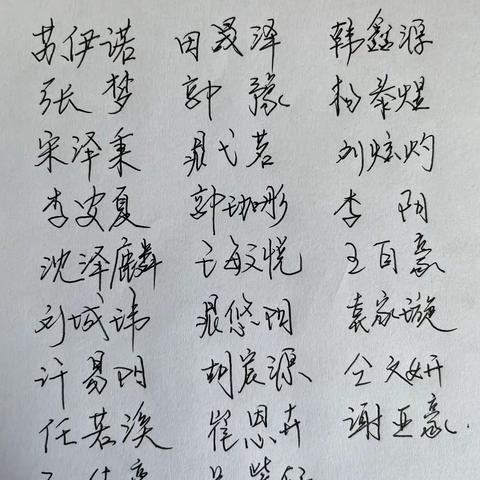 苏伊诺 田晟泽 韩鑫源
张梦 郭豫 杨泰煜
宋泽秉 弋茗 刘炫灼
李安夏 郭珈彤 李阳
沈泽麟 敏悦 王百豪
刘城玮 悠阳 袁家璇
许易阳 胡宸源 仝文妍
任若溪 崔恩卉 谢亚豪.